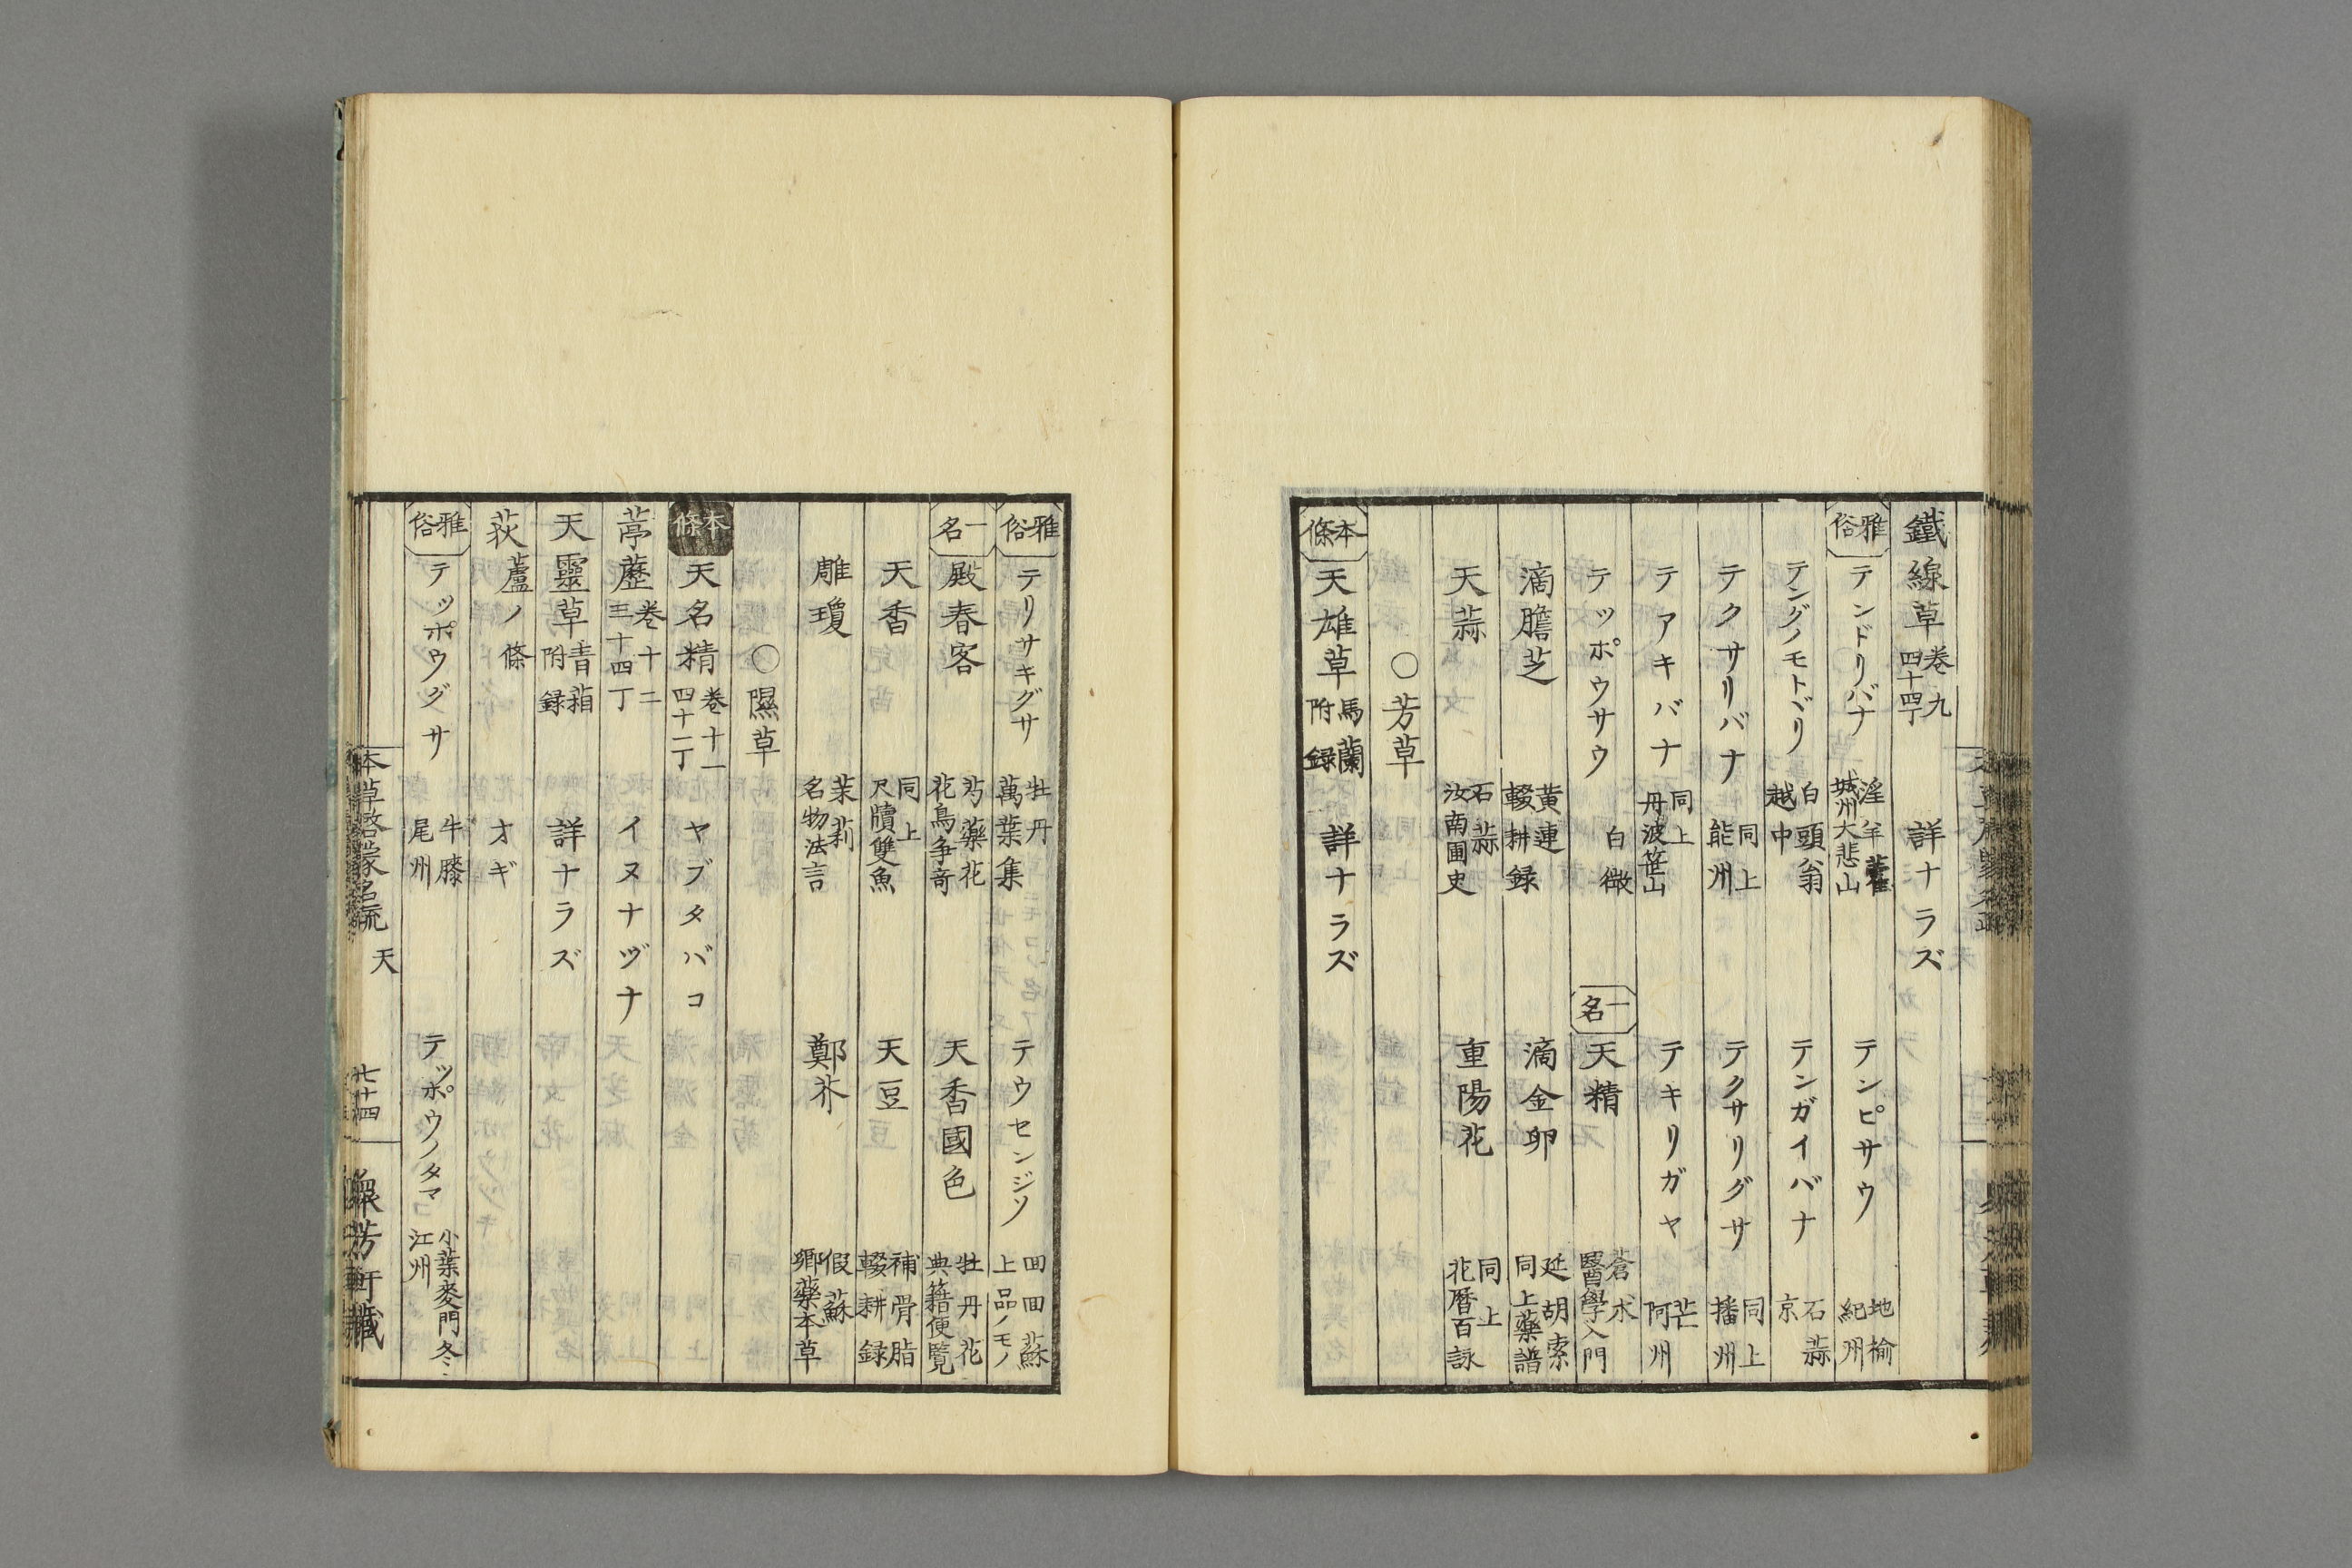 鐵線草 卷九四十四丁 詳ナラズ
雅俗 テンドリバナ 淫羊藿 城州大悲山 テンピサウ 地楡 紀州
テングノモトドリ 白頭翁 越中 テンガイバナ 石蒜 京
テクサリバナ 同上 能州 テクサリグサ 同上 播州
テアキバナ 同上 丹波笹山 テキリガヤ 芒 阿州
テッポウサウ 白微 一名 天精 蒼朮 醫學入門
滴膽芝 黃連 輟耕録 滴金卵 延胡索 同上藥譜
天蒜 石蒜 汝南圃史 重陽花 同上 花曆百詠
〇芳草
本條 天雄草 馬蘭附録 詳ナラズ
雅俗 テリサキグサ 牡丹 萬葉集 テウセンジソ 回回蘇 上品ノモノ
一名 殿春客 芍藥花 花鳥争奇 天香國色 牡丹花 典籍便覽
天香 同上 尺牘雙魚 天豆 補骨脂 輟耕録
雕瓊 茉莉 名物法言 鄭芥 假蘇 鄉藥本草
〇隰草
本條 天名精 卷十一四十二丁 ヤブタバコ
葶藶 卷十二三十四丁 イヌナヅナ
天靈草 青葙附録 詳ナラズ
荻 蘆ノ條 オギ
雅俗 テッポウグサ 牛膝 尾州 テッポウノタマ 小葉麥門冬 江州
本草啓蒙名疏 天 七十四 衆芳軒藏